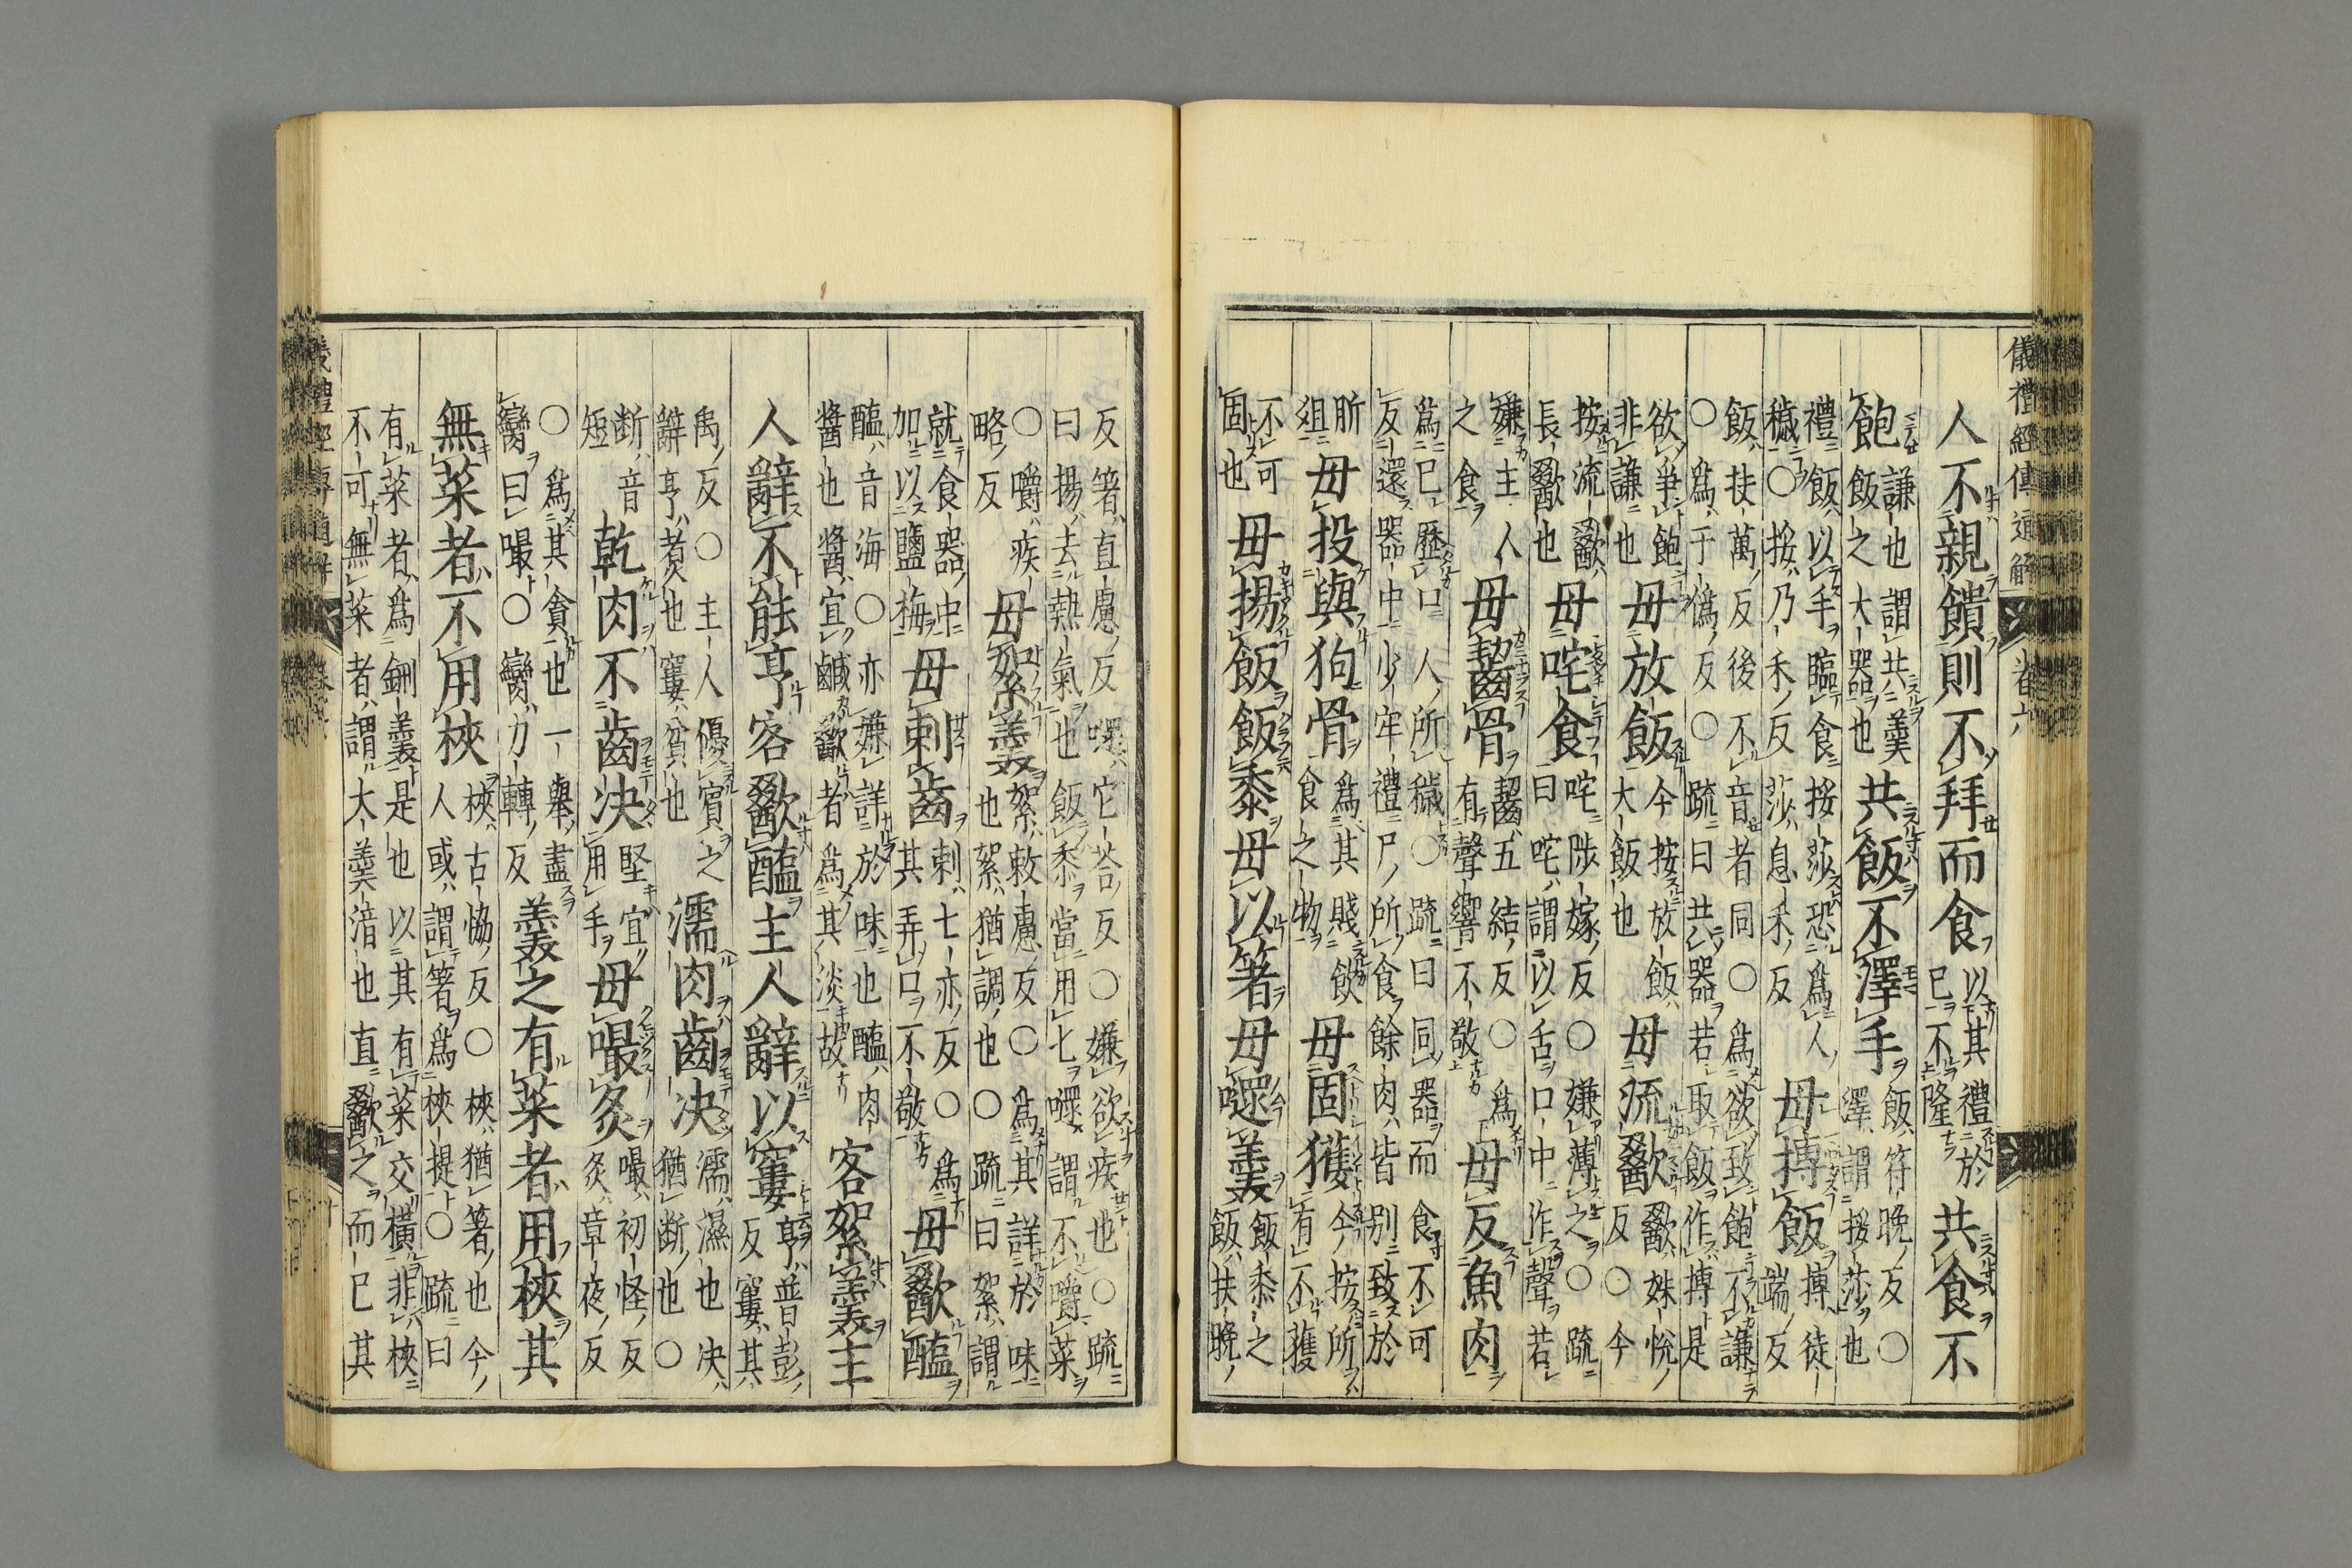 儀禮經傳通解 卷六
人不親饋則不拜而食
以其禮於
己不隆
共食不
飽
謙也謂共羹
飯之大器也
共飯不澤手
飯符晩反○
澤謂挼莎也
禮飯以手臨食挼莎恐爲人
穢○挼乃禾反莎息禾反
毋摶飯
摶徒
端反
飯扶萬反後不音者同○爲欲致飽不謙
○爲于僞反○疏曰共器若取飯作摶是
欲爭飽
非謙也
毋放飯
今按放飯
大飯也
毋流歠
歠姝悅
反○今
按流歠
長歠也
毋咤食
咤陟嫁反○嫌薄之○疏
曰咤謂以舌口中作聲若
嫌主人
之食
毋齧骨
齧五結反○爲
有聲響不敬
毋反魚肉
爲已歷口人所穢○疏曰同器而食不可
反還器中少牢禮尸所食餘肉皆別致於
肵
俎
毋投與狗骨
爲其賤飲
食之物
毋固獲
今按所
有不獲
不可
固也
毋揚飯飯黍毋以箸毋嚃羹
飯黍之
飯扶晩
反箸直慮反嚃它荅反○嫌欲疾也○疏
曰揚去熱氣也飯黍當用匕嚃謂不嚼菜
○嚼疾
略反
毋絮羹
絮敕慮反○爲其詳於味
也絮猶調也○疏曰絮謂
就食器中
加以鹽梅
毋刺齒
刺七亦反○爲
其弄口不敬
毋歠醢
醢音海○亦嫌詳於味也醢肉
醬也醬宜鹹歠者爲其淡故
客絮羹主
人辭不能亨客歠醢主人辭以窶
亨普彭
反窶其
禹反○主人優賓之
辭亨煮也窶貧也
濡肉齒决
濡濕也决
猶断也○
断音
短
乾肉不齒决
堅宜
用手
毋嘬炙
嘬初怪反
炙章夜反
○爲其貪也一舉盡
臠曰嘬○臠力轉反
羹之有菜者用梜其
無菜者不用梜
梜古協反○梜猶箸也今
人或謂箸爲梜提○疏曰
有菜者爲鉶羹是也以其有菜交橫非梜
不可無菜者謂大羹湆也直歠之而已其